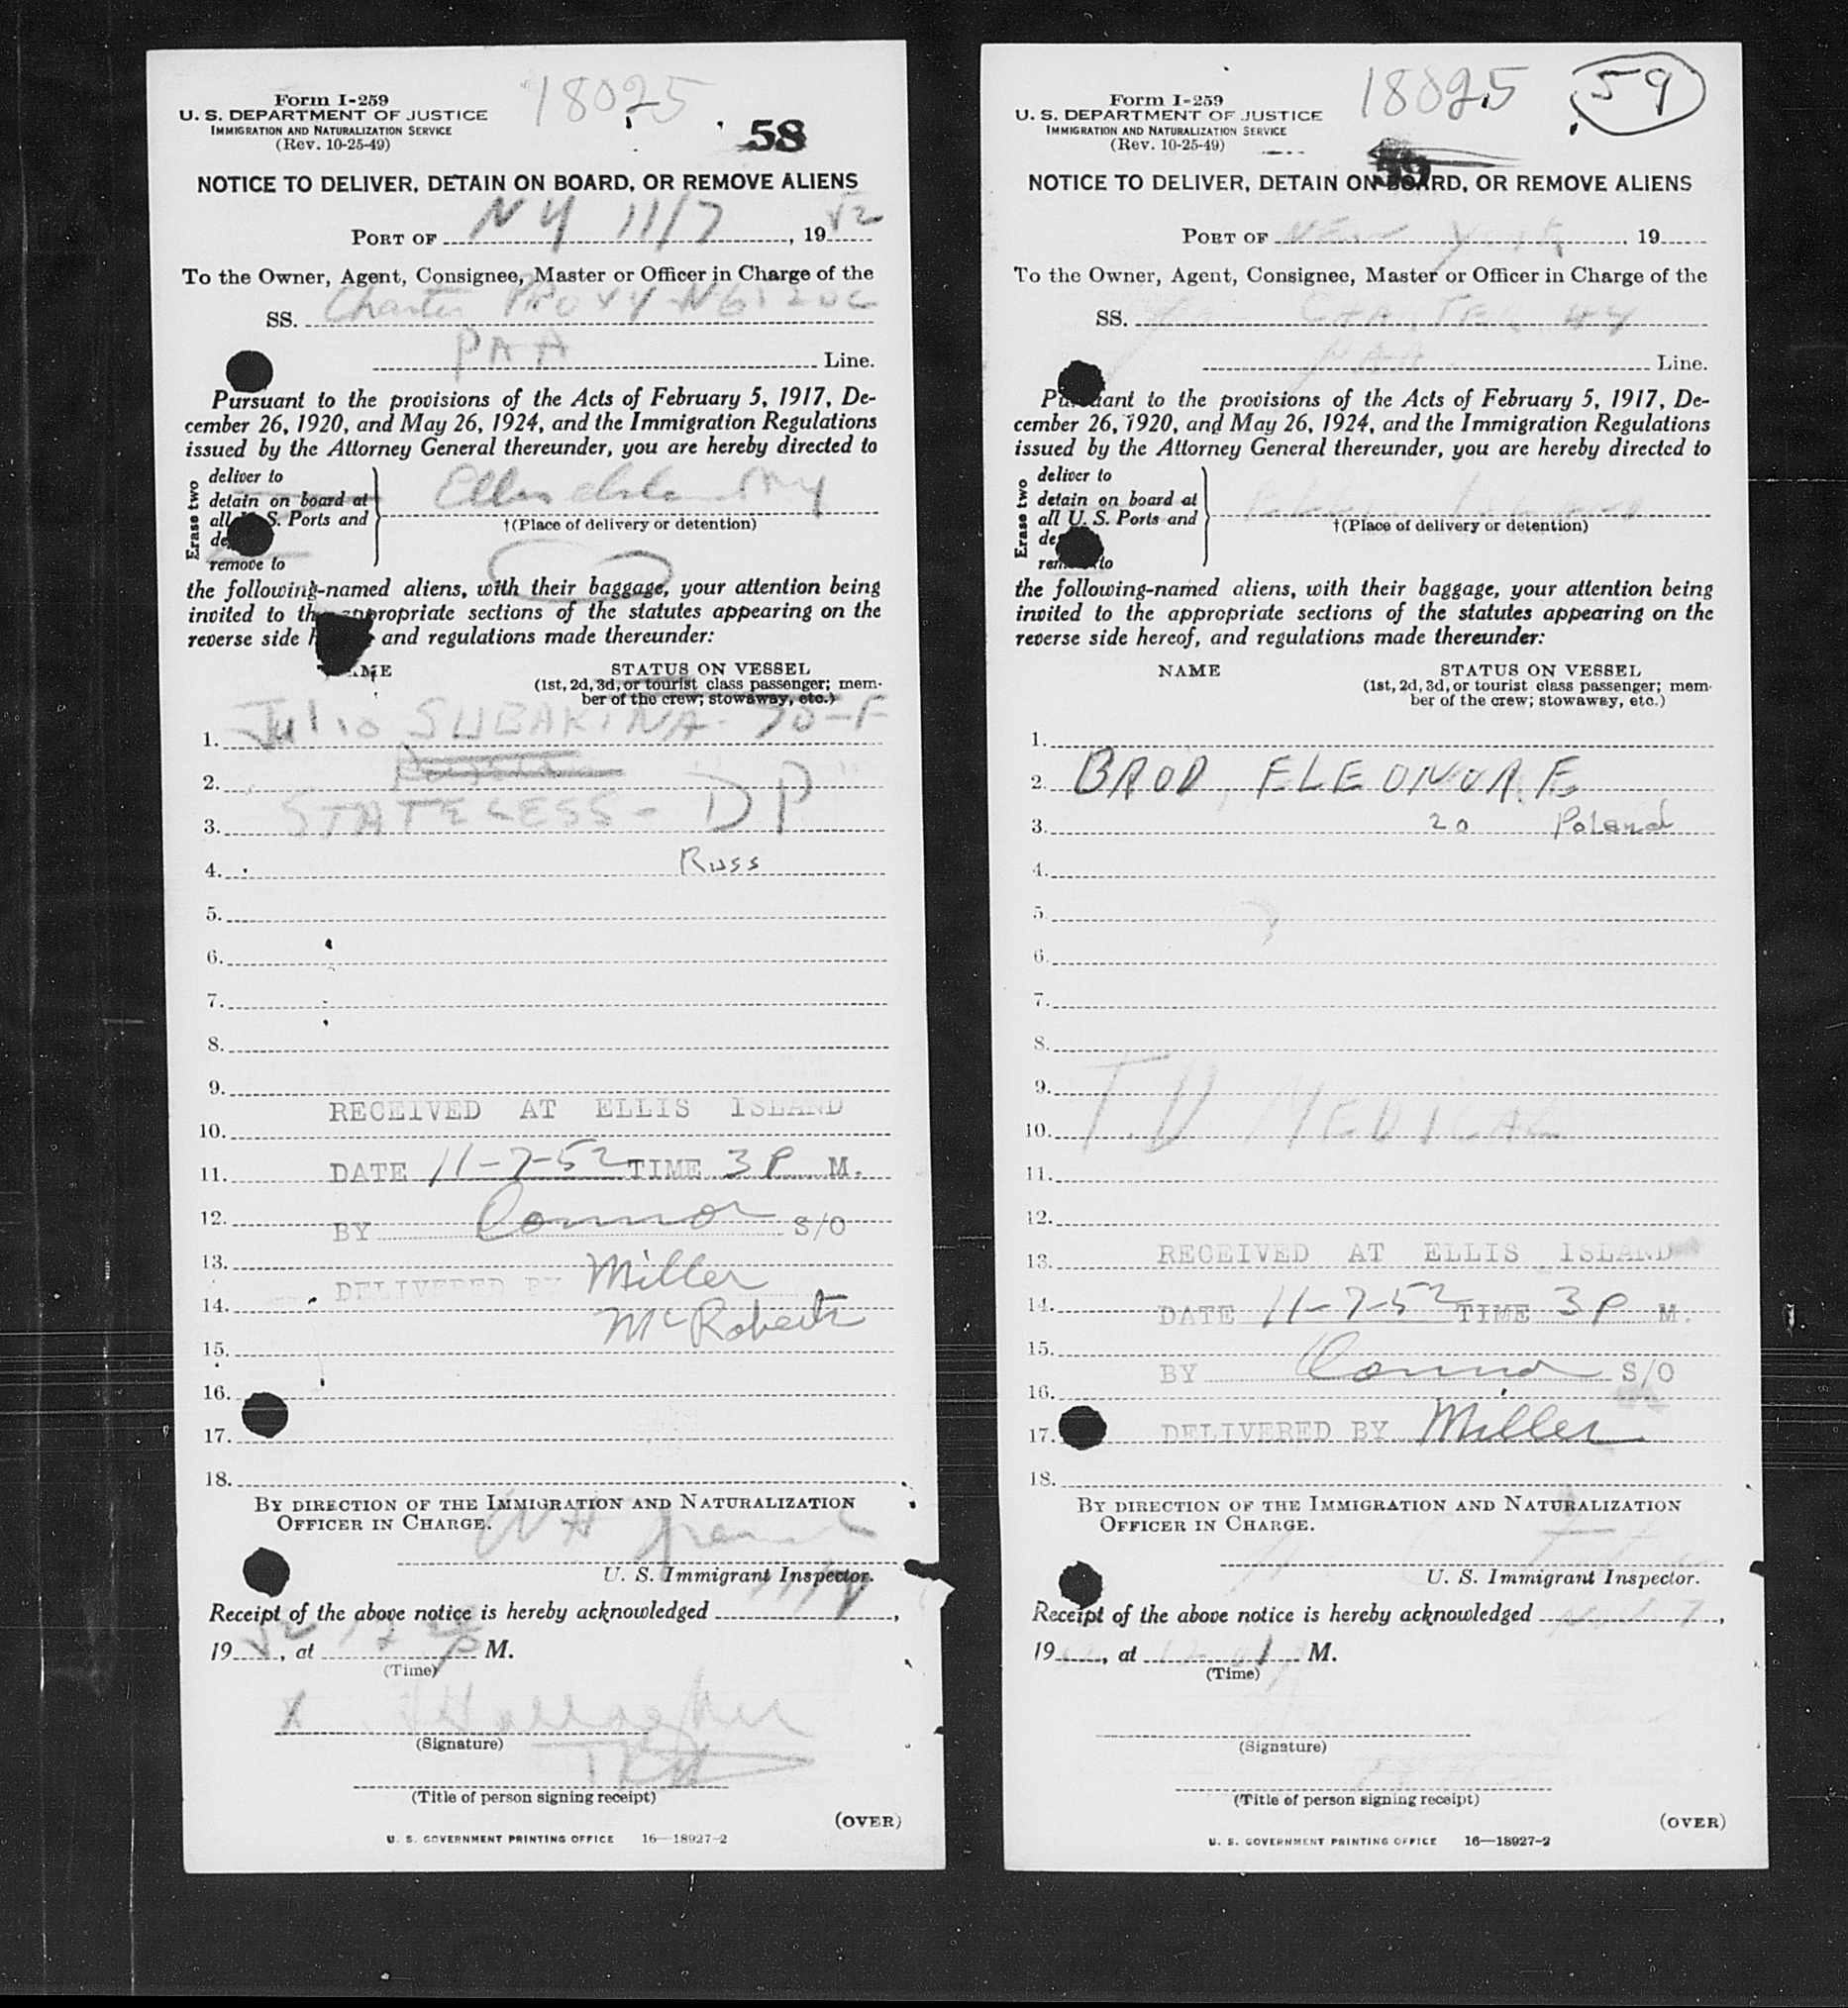 Form I-259
U. S. DEPARTMENT OF JUSTICE
IMMIGRATION AND NATURALIZATION SERVICE
(Rev. 10-25-49)
18025
58
NOTICE TO DELIVER, DETAIN ON BOARD, OR REMOVE ALIENS
PORT OF N Y 11/7, 1952
To the Owner, Agent, Consignee, Master or Officer in Charge of the
SS. Charter
PAA Line.
Pursuant to the provisions of the Acts of February 5, 1917, De-
cember 26, 1920, and May 26, 1924, and the Immigration Regulations
issued by the Attorney General thereunder, you are hereby directed to
Erase two
deliver to
detain on board at
all U. S. Ports and
remove to
Ellis Island NY
†(Place of delivery or detention)
the following-named aliens, with their baggage, your attention being
invited to the appropriate sections of the statutes appearing on the
reverse side and regulations made thereunder:
NAME
STATUS ON VESSEL
(1st, 2d, 3d, or tourist class passenger; mem-
ber of the crew; stowaway, etc.)
1. Julio SUBAKINA - 70-F
2.
3. STATELESS - DP
4. Russ
5.
6.
7.
8.
9.
RECEIVED AT ELLIS ISLAND
10.
11. DATE 11-7-52 TIME 3 P M.
12. BY Connor S/O
13. DELIVERED BY Miller
14. McRoberts
15.
16.
17.
18.
BY DIRECTION OF THE IMMIGRATION AND NATURALIZATION
OFFICER IN CHARGE.
U. S. Immigrant Inspector.
Receipt of the above notice is hereby acknowledged 11/7,
1952, at M.
(Time)
X Hallagher
(Signature)
(Title of person signing receipt)
(OVER)
U. S. GOVERNMENT PRINTING OFFICE 16—18927-2
Form I-259
U. S. DEPARTMENT OF JUSTICE
IMMIGRATION AND NATURALIZATION SERVICE
(Rev. 10-25-49)
18025
59
59
NOTICE TO DELIVER, DETAIN ON BOARD, OR REMOVE ALIENS
PORT OF New York, 19
To the Owner, Agent, Consignee, Master or Officer in Charge of the
SS. CHARTER 44
PAA Line.
Pursuant to the provisions of the Acts of February 5, 1917, De-
cember 26, 1920, and May 26, 1924, and the Immigration Regulations
issued by the Attorney General thereunder, you are hereby directed to
Erase two
deliver to
detain on board at
all U. S. Ports and
remove to
†(Place of delivery or detention)
the following-named aliens, with their baggage, your attention being
invited to the appropriate sections of the statutes appearing on the
reverse side hereof, and regulations made thereunder:
NAME
STATUS ON VESSEL
(1st, 2d, 3d, or tourist class passenger; mem-
ber of the crew; stowaway, etc.)
1.
2. BROD, ELEONORE
3. 20 Poland
4.
5.
6.
7.
8.
9.
10. T.D MEDICAL
11.
12.
13. RECEIVED AT ELLIS ISLAND
14. DATE 11-7-52 TIME 3 P M.
15.
BY Connor S/O
16.
17. DELIVERED BY Miller
18.
BY DIRECTION OF THE IMMIGRATION AND NATURALIZATION
OFFICER IN CHARGE.
U. S. Immigrant Inspector.
Receipt of the above notice is hereby acknowledged Nov 7,
19, at M.
(Time)
(Signature)
(Title of person signing receipt)
(OVER)
U. S. GOVERNMENT PRINTING OFFICE 16—18927-2